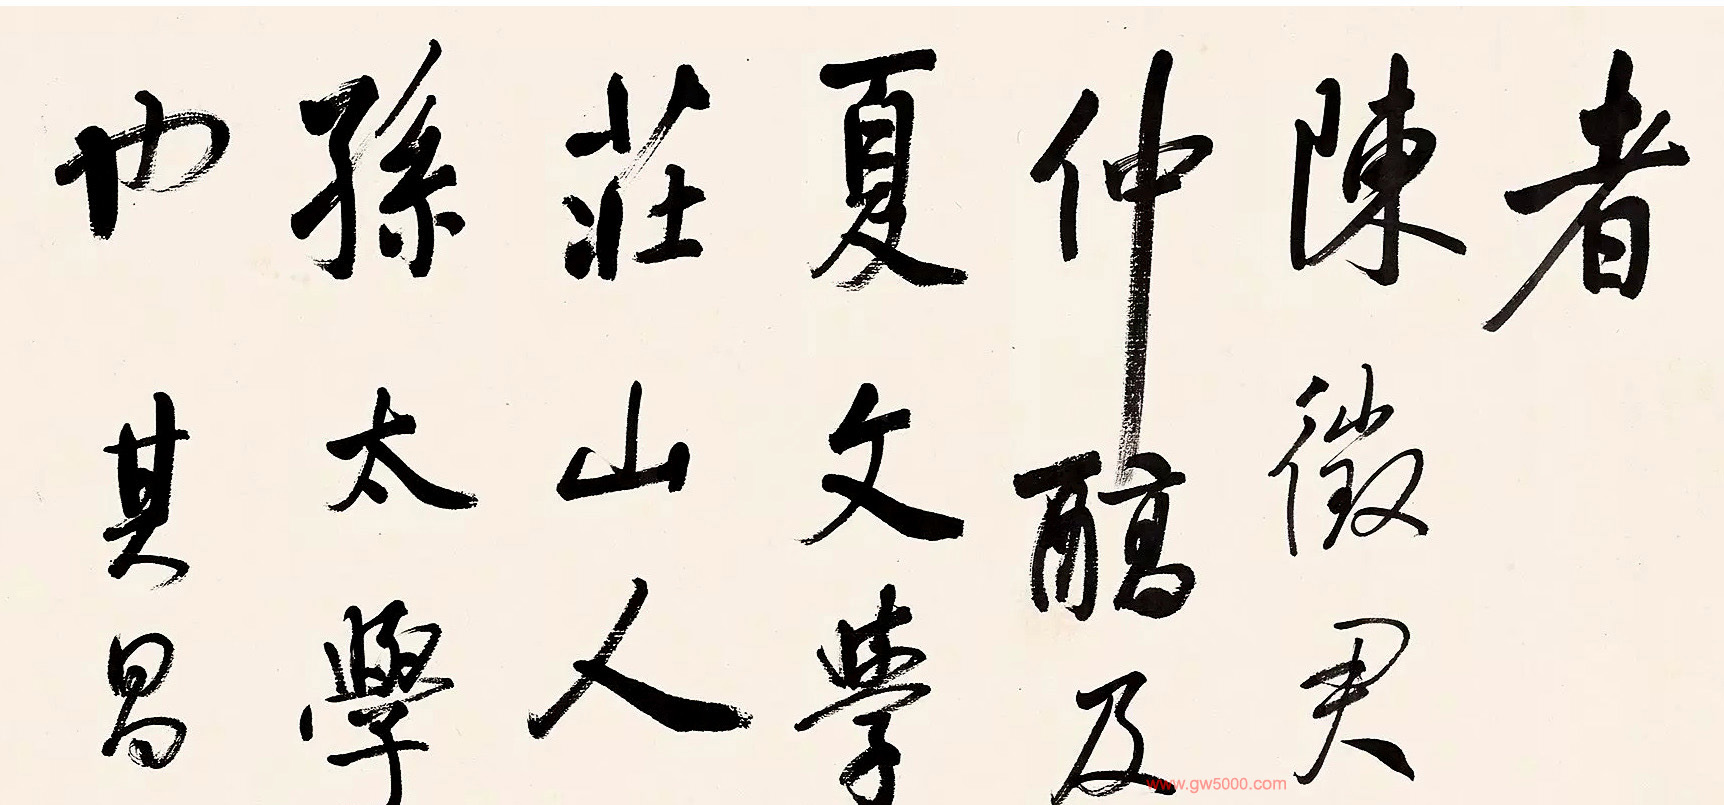 者
陳徵君
仲醇及
夏文學
莊山人
孫太學
也其昌
www.gw5000.com